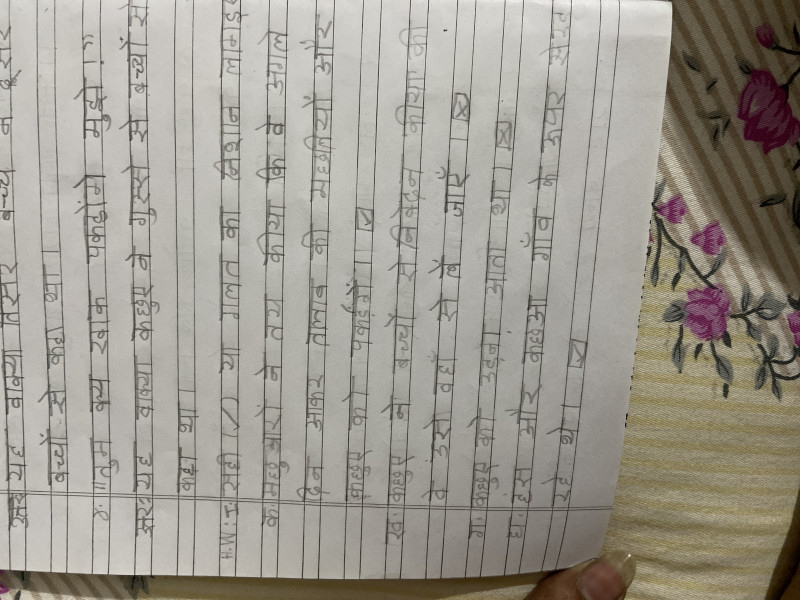 अतः यह वाक्या तिसरे बच्चे ने दूसरे
बच्चों से कहा था।
२. "तुम क्य खाक पकड़ोंगे मुझे!"
अतः यह वाक्या कछुए ने गुस्से से बच्चों से
कहा था।
I: M.H सही (✓) या गलत का निशान लगाइए
क. मछुआरों ने तय कीया कि वे अगले
दिन आकर तलाब की मछलीयों और
कछुए को पकड़ेगें। ☑
ख. कछुए ने बच्चों से निवेदन कीया की
वे उसे वहाँ से ले जाएँ। ☒
ग. कछुए को उड़ना आता था। ☒
घ. हंस और कछुआ गाँव के ऊपर से उड़
रहे थे। ☑